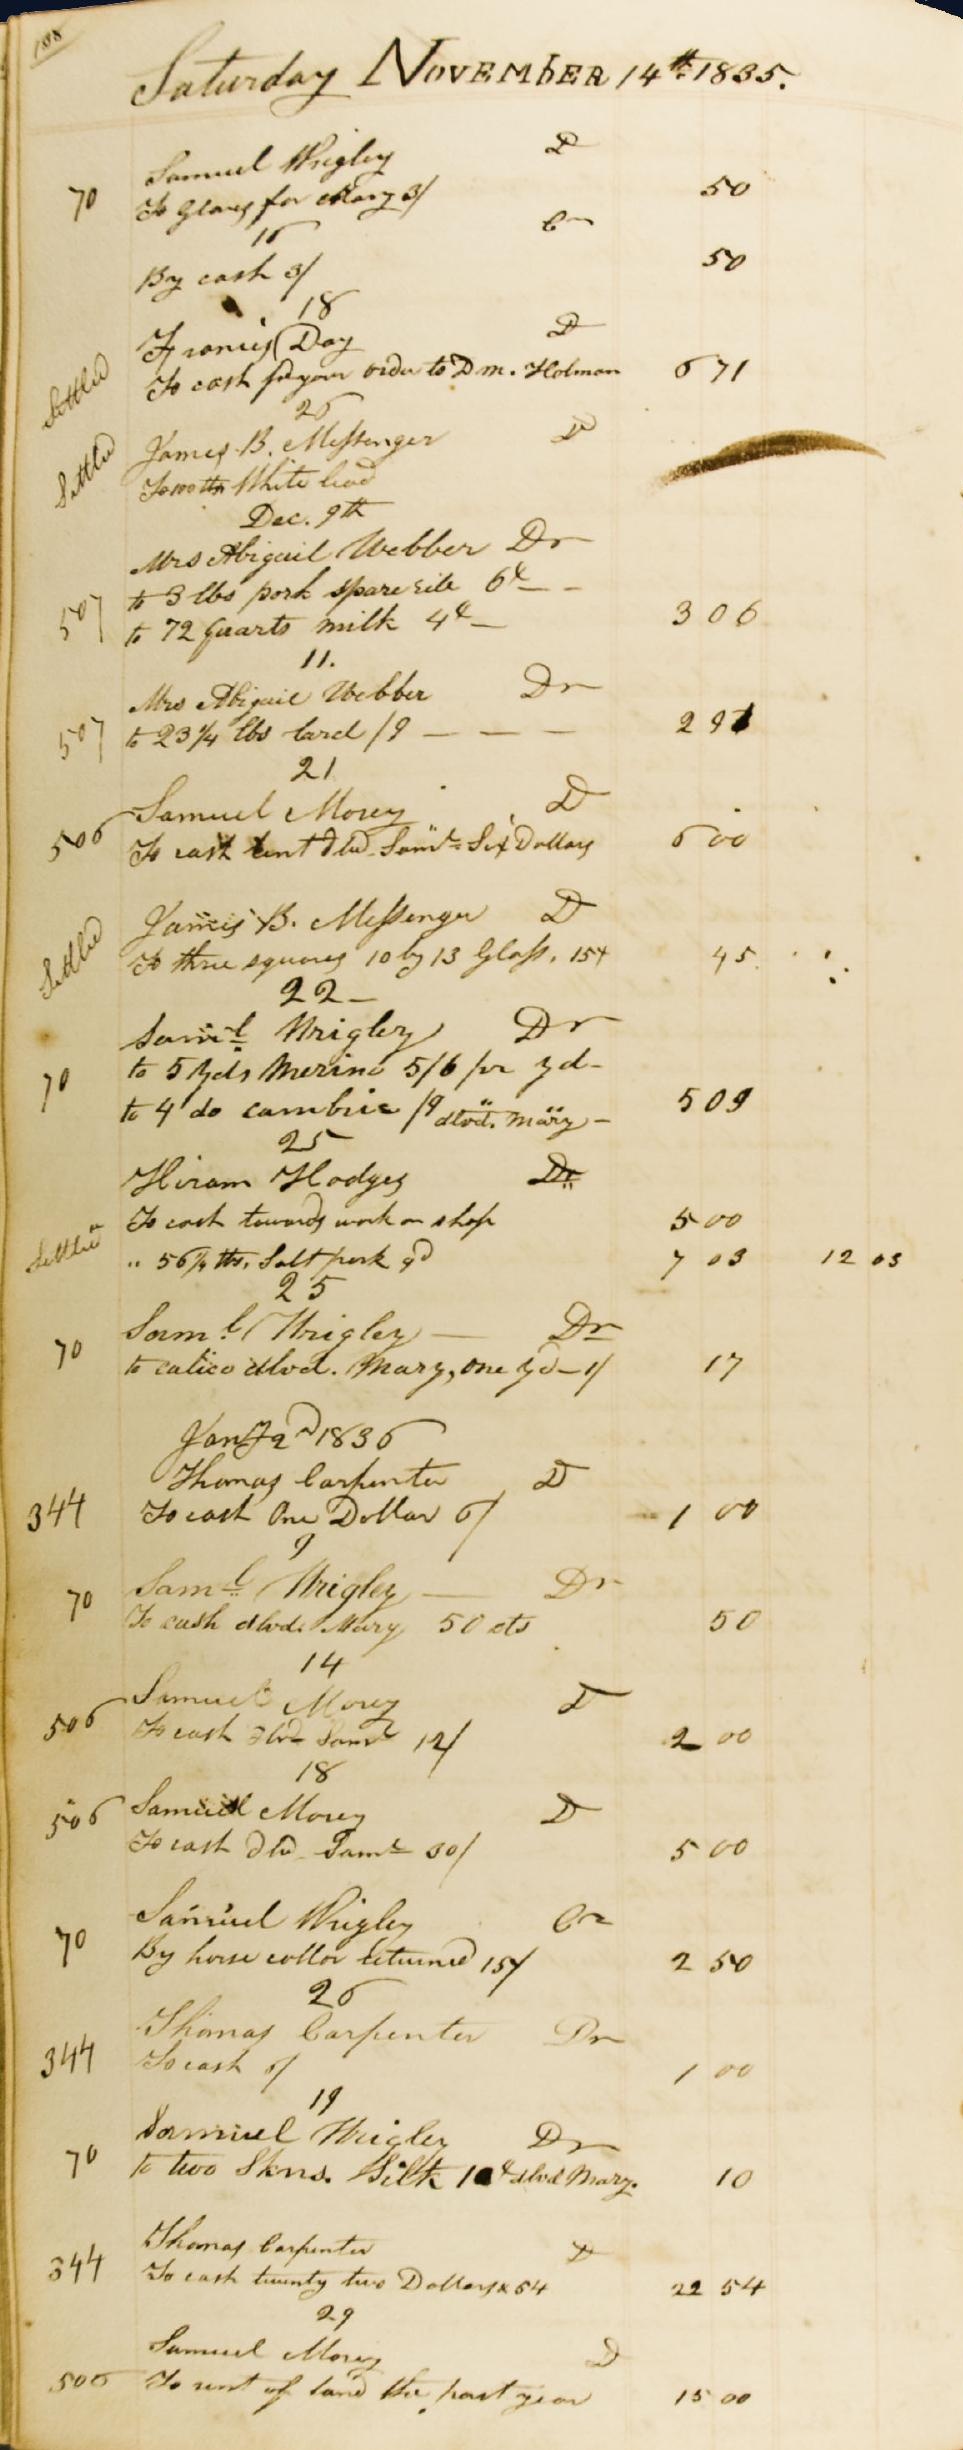 188
Saturday November 14th 1835.
Samuel Wrigley D
70 To Gloves for Mary 3/ 50
16 Cr
By cash 3/ 50
18
Francis Day D
Settled To cash for your order to D m. Holman 6 71
26
James B. Messenger D
Settled To 100 lbs White lead
Dec. 9th
Mrs Abigail Webber Dr
to 3 lbs pork sparerib 6c
507 to 72 quarts milk 4c 3 06
11.
Mrs Abigail Webber Dr
507 to 23 1/4 lbs lard /9 2 91
21
Samuel Morey D
506 To cash lent dlvd Saml Six Dollars 6 00
James B. Messenger D
Settled To three squares 10 by 13 Glass. 15+ 45
22
Saml Wrigley Dr
70 to 5 yds Merino 5/6 pr yd
to 4 do cambric /9 dlvd. Mary 5 09
25
Hiram Hodges Dr
To cash towards work on shop 5 00
Settled " 56 1/4 lbs. Salt pork 9d 7 03 12 03
25
Saml Wrigley Dr
70 to calico dlvd. Mary, one yd 1/ 17
Jany 2nd 1836
Thomas Carpenter D
344 To cash One Dollar 6/ 1 00
9
Saml Wrigley Dr
70 To cash dlvd. Mary 50 cts 50
14
Samuel Morey D
506 To cash dlvd Saml 12/ 2 00
18
Samuel Morey D
506 To cash dlvd Saml 30/ 5 00
Samuel Wrigley Cr
70 By horse collar returned 15/ 2 50
26
Thomas Carpenter Dr
344 To cash 6/ 1 00
19
Samuel Wrigley Dr
70 to two Skns. Silk 10c dlvd Mary. 10
Thomas Carpenter D
344 To cash twenty two Dollars & 54 22 54
29
Samuel Morey D
506 To rent of land the past year 15 00